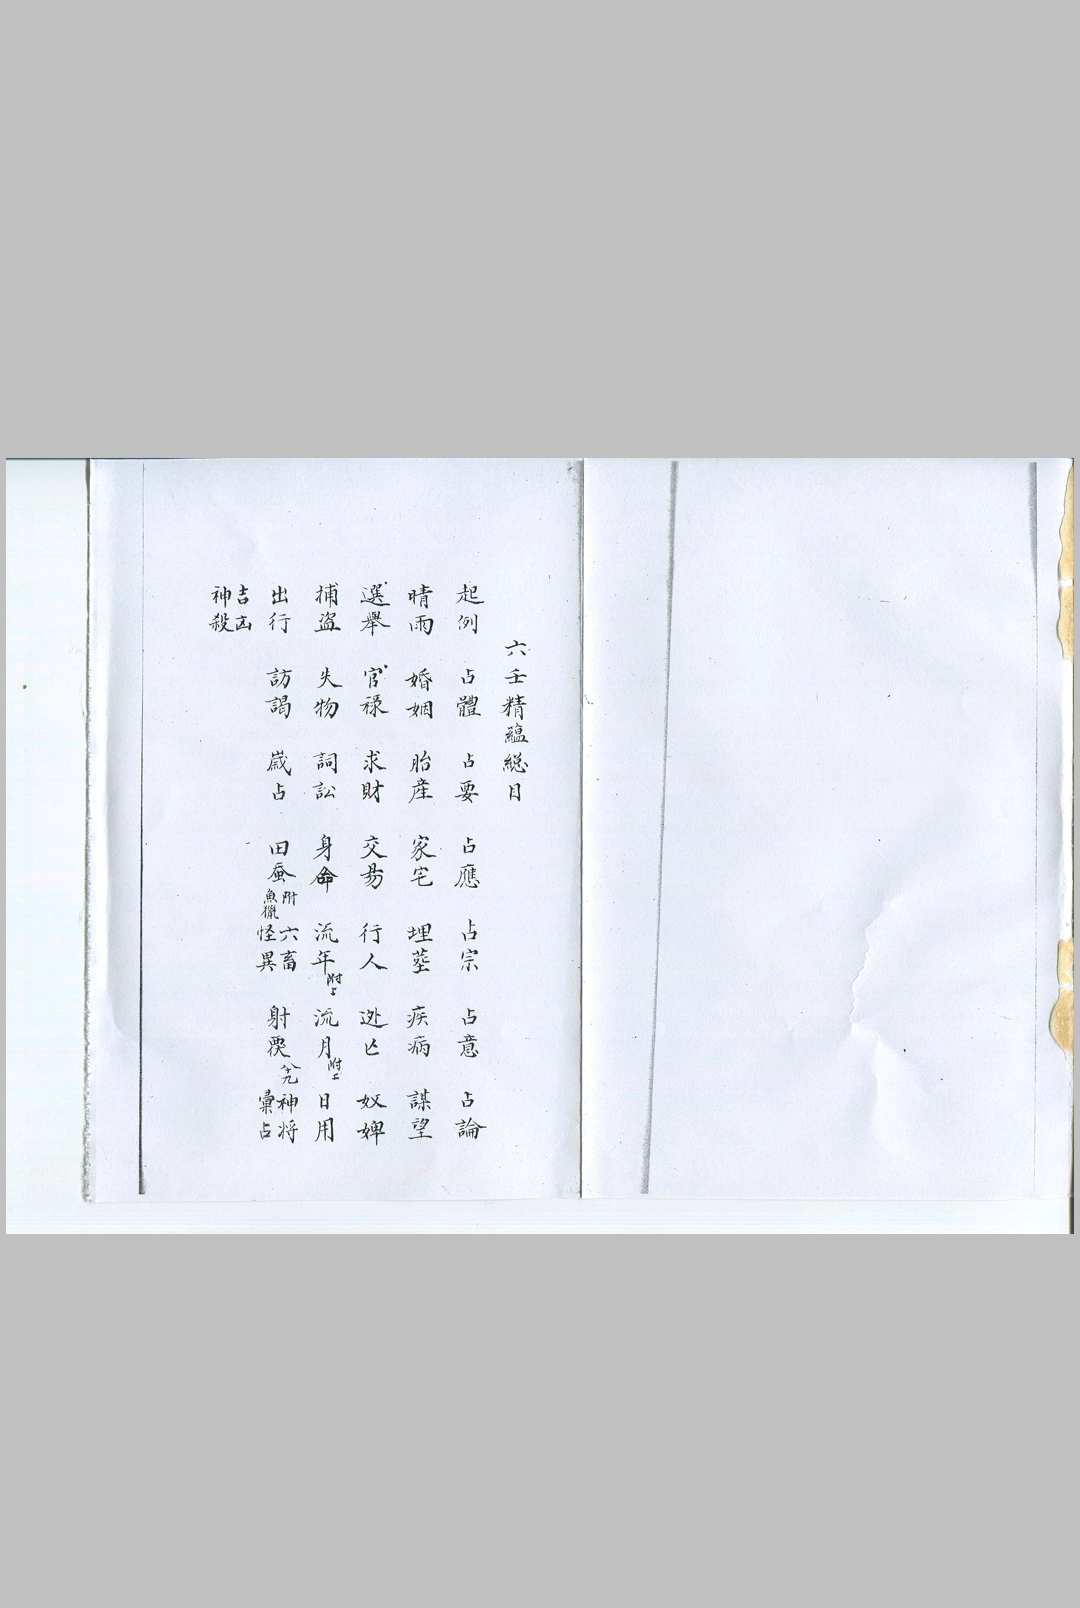 六壬精蘊総目
起例 占體 占要 占應 占宗 占意 占論
晴雨 婚姻 胎産 家宅 埋塟 疾病 謀望
選舉 官禄 求財 交易 行人 逃亡 奴婢
捕盗 失物 詞訟 身命 流年附上 流月附上 日用
出行 訪謁 歳占 田蚕附魚獵 六畜怪異 射覆 神将彙占
吉凶神殺